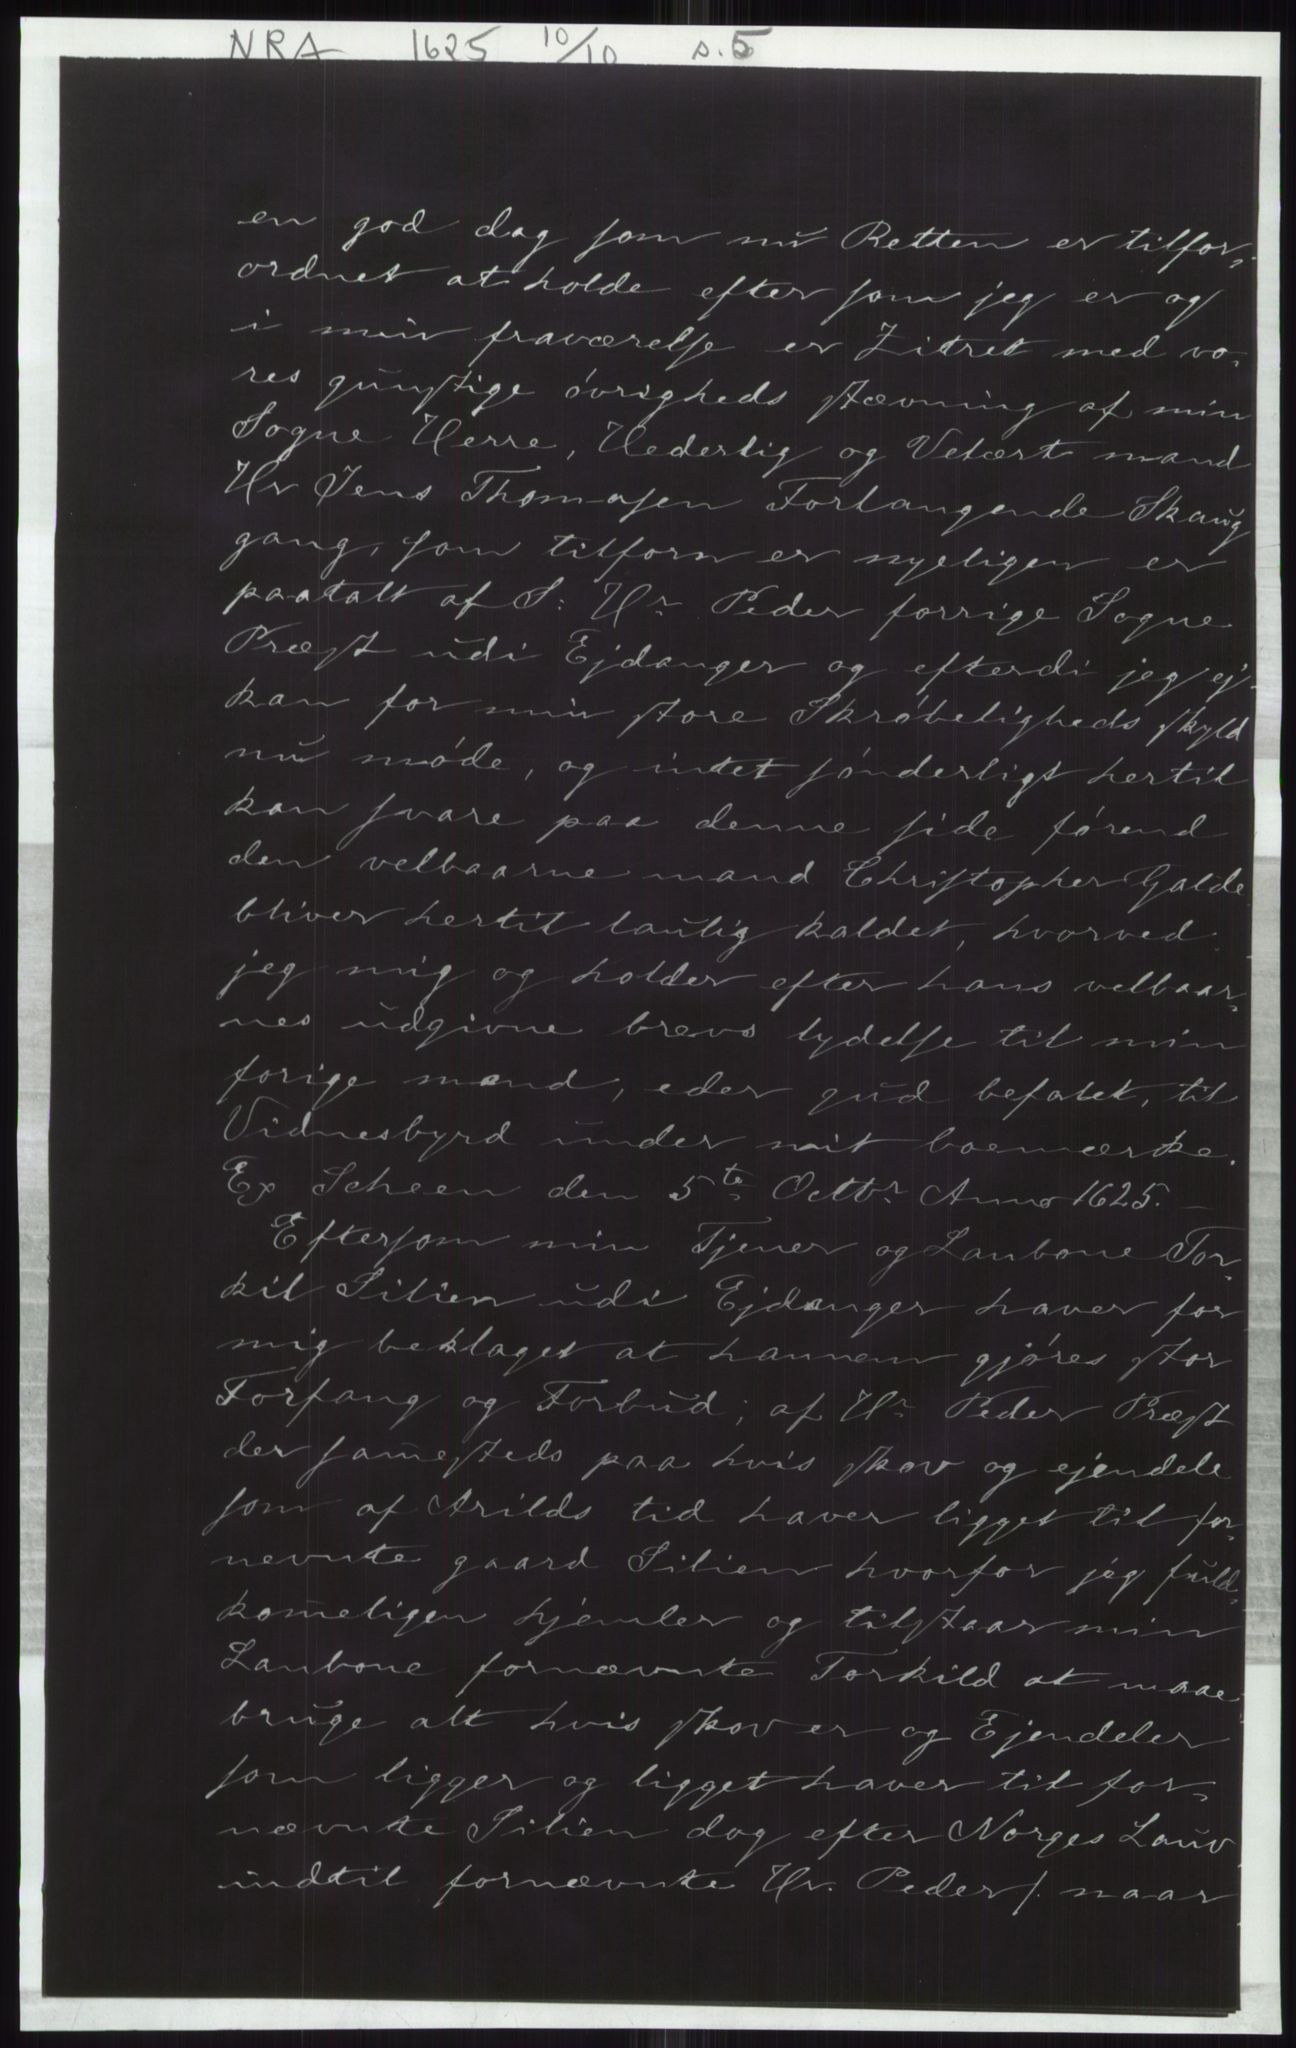 NRA 1625 10/10 s. 5
en god dag som nu Retten er tilfor-
ordnet at holde efter som jeg er og
i min fraværelse er Zitret med vo-
res gunstige øvrigheds stævning af min
Sogne Herre, Hederlig og Velært mand
Hr Jens Thomasen Forlangende Skaug
gang, som tilforn er nyeligen er
paatalt af S: Hr Peder forrige Sogne
Præst udi Ejdanger og efterdi jeg ej
kan for min store Skrøbeligheds skyld
nu møde, og intet sønderligt hertil
kan svare paa denne side førend
den velbaarne mand Christopher Galde
bliver hertil laulig kaldet, hvorved
jeg mig og holder efter hans velbaar-
nes udgivne brevs lydelse til min
forige mand, eder gud befalet, til
Vidnesbyrd under mit boemærke.
Ex Scheen den 5te Octbr Anno 1625. -
Eftersom min Tjener og Lanbone Tor-
kil Silien udi Ejdanger haver for
mig beklaget at hannem gjøres stor
Forfang og Forbud; af Hr Peder Præst
der sam̄esteds paa hvis skov og ejendele
som af Arilds tid haver ligget til for-
nevnte gaard Silien hvorfor jeg fuld-
kom̄eligen hjemler og tilstaar min
Lanbone fornævnte Torkild at maae
bruge alt hvis skov er og Ejendeler
som ligger og ligget haver til for-
nævnte Silien dog efter Norges Lauv
indtil fornævnte Hr. Peder /. naar